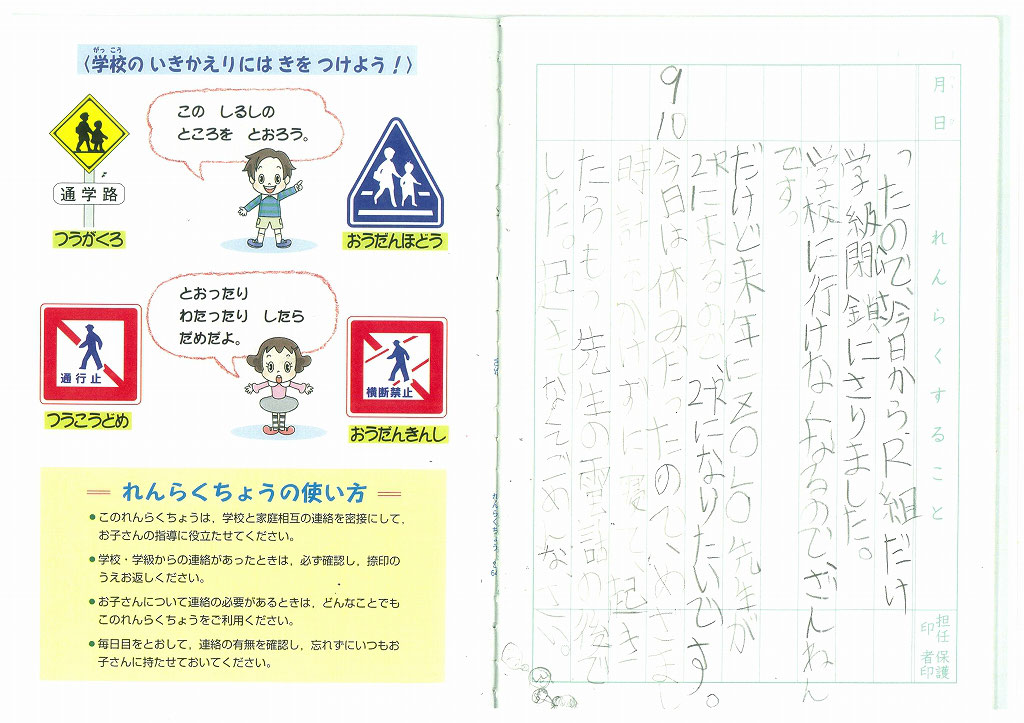 〈学校の いきかえりには きを つけよう！〉
がっ こう
この しるしの
ところを とおろう。
通学路
つうがくろ
おうだんほどう
とおったり
わたったり したら
だめだよ。
通行止
つうこうどめ
横断禁止
おうだんきんし
れんらくちょうの使い方
●このれんらくちょうは，学校と家庭相互の連絡を密接にして，
お子さんの指導に役立たせてください。
●学校・学級からの連絡があったときは，必ず確認し，捺印の
うえお返しください。
●お子さんについて連絡の必要があるときは，どんなことでも
このれんらくちょうをご利用ください。
●毎日目をとおして，連絡の有無を確認し，忘れずにいつもお
子さんに持たせておいてください。
月日
れんらくすること
担任印
保護者印
ったので、今日から、R組だけ
学級閉鎖にさりました。
学校に行けなくなるのでざんねん
です。
だけど来年に 先生が
2Rに来るの 2Rになりたいです。
9
10
今日は休みだったので、めざまし
時計 かけずに寝て、起き
たらもう先生の電話の後で
した。起きなくてごめんなさい。